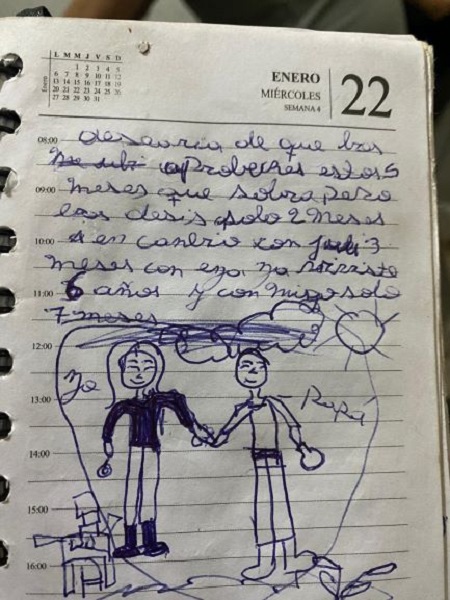 L M M J V S D
1 2 3 4 5
6 7 8 9 10 11 12
13 14 15 16 17 18 19
20 21 22 23 24 25 26
27 28 29 30 31
Enero
ENERO
MIÉRCOLES
SEMANA 4
22
08:00
desearia de que bos
aprobeches estos 5
09:00
meses que sobra pero
bos desis solo 2 meses
10:00
en canbio con juli 3
meses con eya ya
11:00
6 años y con migo solo
7 meses
12:00
yo
13:00
Papá
14:00
15:00
16:00